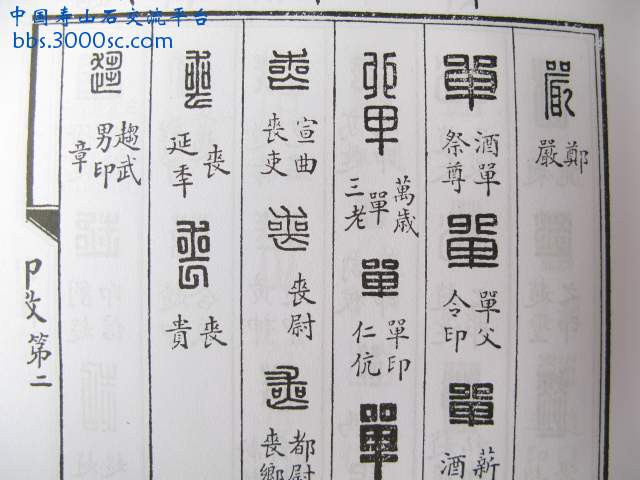 中国寿山石交流平台
bbs.3000sc.com
嚴
鄭
嚴
單
酒單
祭尊
單
單父
令印
單
薪
酒
萬歲
單
三老
單
單印
仁伉
單
喪
宣曲
喪吏
喪
喪尉
喪
都尉
喪鄉
喪
喪
延秊
喪
喪
貴
趨武
男印
章
印文第二